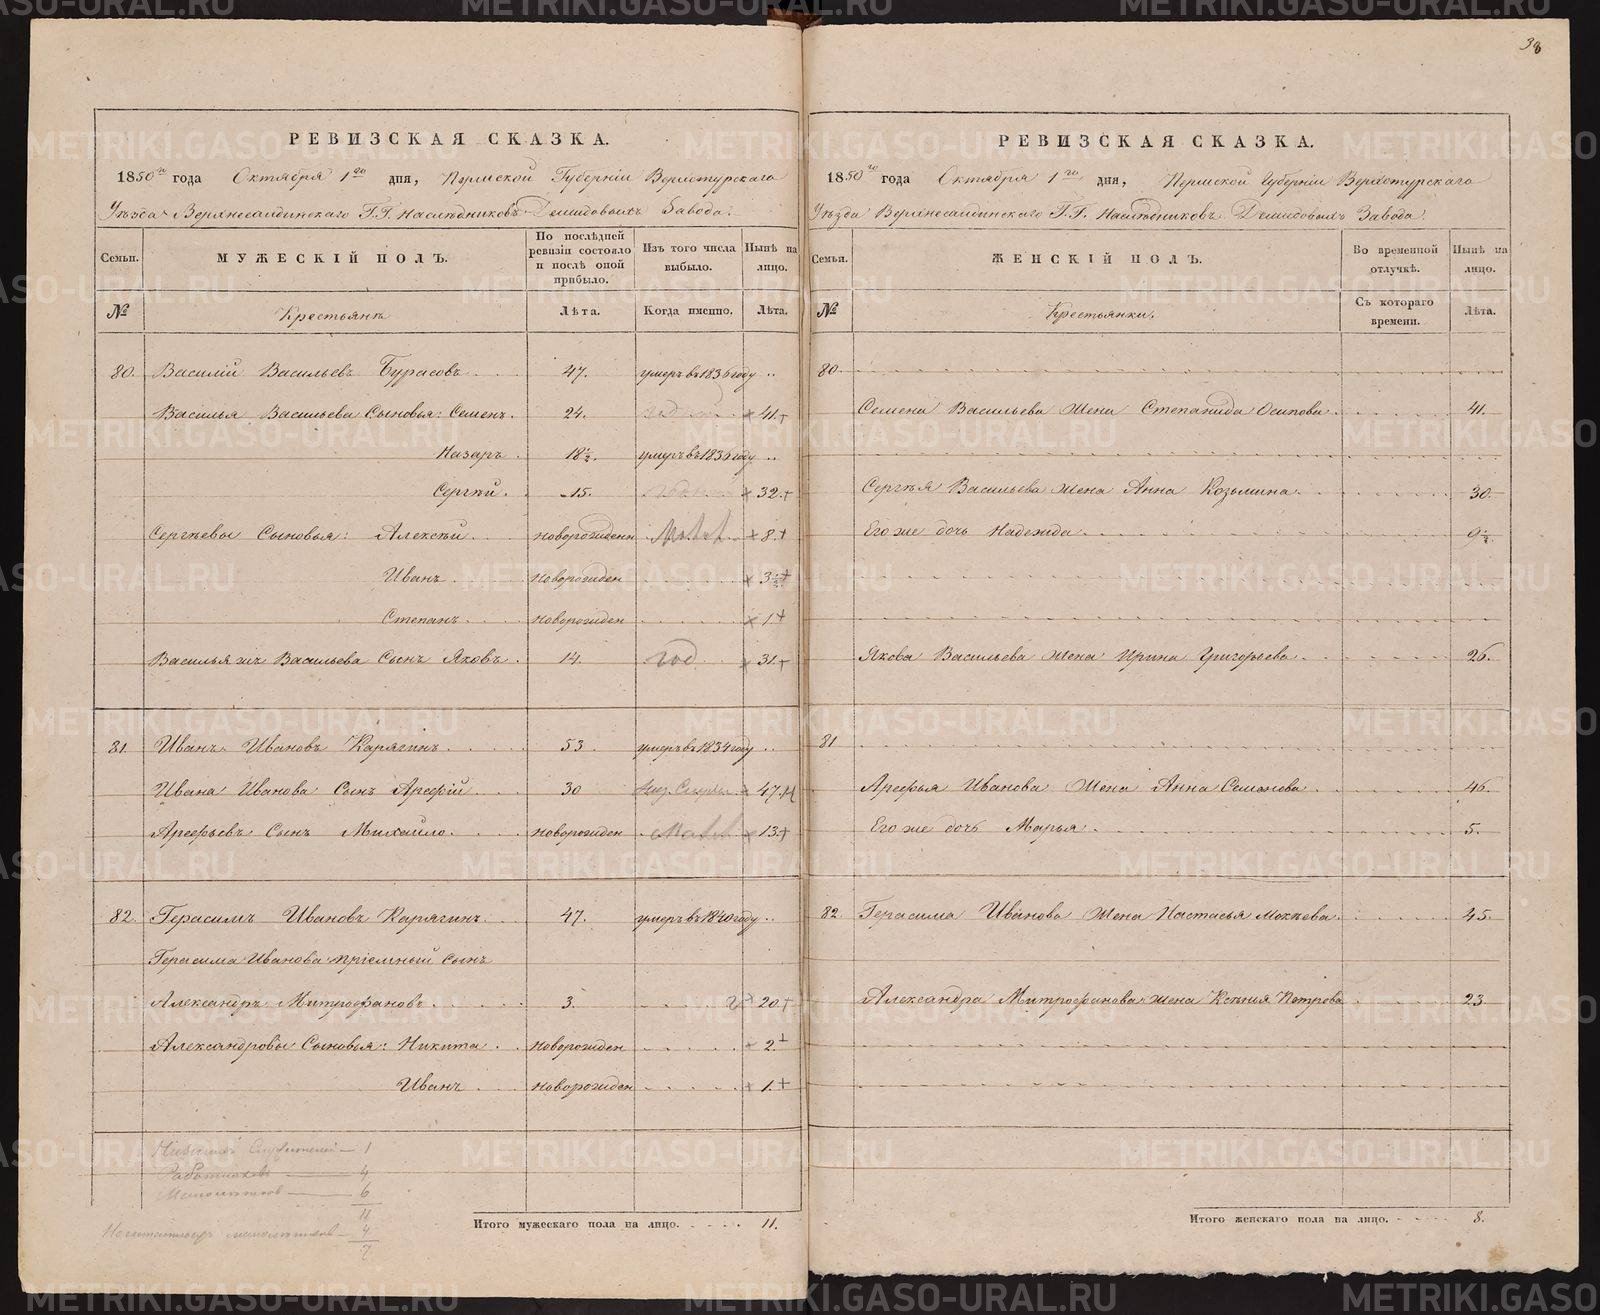 38
РЕВИЗСКАЯ СКАЗКА.
1850го года Октября 1го дня, Пермской Губерніи Верхотурскаго
Уѣзда Верхнесалдинскаго Г.Г. Наслѣдниковъ Демидовыхъ Завода.
Семьи. МУЖЕСКІЙ ПОЛЪ. По послѣдней ревизіи состояло и послѣ оной прибыло. Изъ того числа выбыло. Нынѣ на лицо.
№ Крестьянъ Лѣта. Когда именно. Лѣта.
80. Василий Васильевъ Бурасовъ 47. умеръ въ 1836 году
Василья Васильева Сыновья: Семенъ. 24. 41.
Назаръ 18½. умеръ въ 1836 году
Сергѣй. 15. 32.
Сергѣевы Сыновья: Алексѣй новорожденн 8.
Иванъ новорожден 3½
Степанъ новорожден 1
Василья жъ Васильева Сынъ Яковъ. 14. год 31.
81. Иванъ Ивановъ Карягинъ 53 умеръ въ 1834 году
Ивана Иванова Сынъ Арефій 30 47.
Арефьевъ Сынъ Михайло. новорожден 13.
82. Герасимъ Ивановъ Карягинъ 47. умеръ въ 1840 году
Герасима Иванова пріемный сынъ
Александръ Митрофановъ 3. 20.
Александровы Сыновья: Никита новорожден 2.
Иванъ новорожден 1.
Служителей — 1
Работников — 4
Малолѣтков — 6
11
малолѣтков — 4
7
Итого мужескаго пола на лицо. 11.
РЕВИЗСКАЯ СКАЗКА.
1850го года Октября 1го дня, Пермской Губерніи Верхотурскаго
Уѣзда Верхнесалдинскаго Г.Г. Наслѣдниковъ Демидовыхъ Завода.
Семьи. ЖЕНСКІЙ ПОЛЪ. Во временной отлучкѣ. Нынѣ на лицо.
№ Крестьянки. Съ котораго времени. Лѣта.
80.
Семена Васильева жена Степанида Осипова 41.
Сергѣя Васильева жена Анна Козьмина 30.
Его же дочь Надежда 9½.
Якова Васильева жена Ирина Григорьева 26.
81
Арефья Иванова жена Анна Семенова 46.
Его же дочь Марья 5.
82. Герасима Иванова жена Настасья Мокѣева 45.
Александра Митрофанова жена Ксенія Петрова 23
Итого женскаго пола на лицо. 8.
METRIKI.GASO-URAL.RU